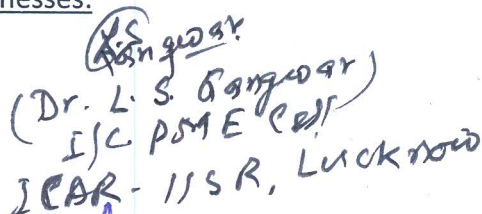 nesses:
L.S. Gangwar
(Dr. L. S. Gangwar)
I/C PME Cell
ICAR-IISR, Lucknow